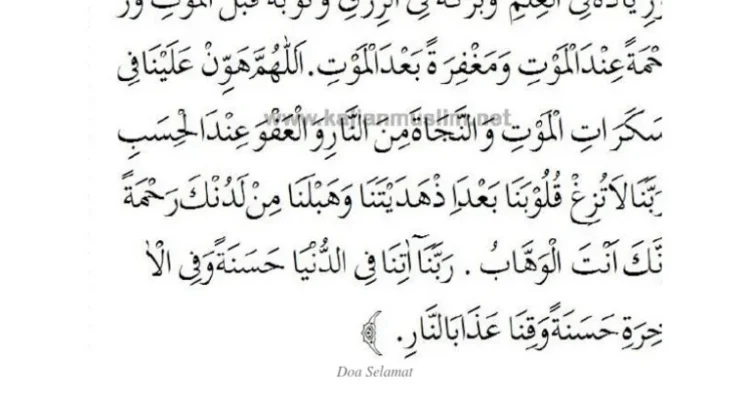 وَزِيَادَةً فِي الْعِلْمِ وَبَرَكَةً فِي الرِّزْقِ وَتَوْبَةً قَبْلَ الْمَوْتِ وَرَ
حْمَةً عِنْدَ الْمَوْتِ وَمَغْفِرَةً بَعْدَ الْمَوْتِ. اَللّٰهُمَّ هَوِّنْ عَلَيْنَا فِي
سَكَرَاتِ الْمَوْتِ وَالنَّجَاةَ مِنَ النَّارِ وَالْعَفْوَ عِنْدَ الْحِسَابِ
www.kajianmuslim.net
رَبَّنَا لَا تُزِغْ قُلُوْبَنَا بَعْدَ اِذْ هَدَيْتَنَا وَهَبْ لَنَا مِنْ لَدُنْكَ رَحْمَةً
نَّكَ اَنْتَ الْوَهَّابُ. رَبَّنَا آتِنَا فِي الدُّنْيَا حَسَنَةً وَفِي الْاٰ
خِرَةِ حَسَنَةً وَقِنَا عَذَابَ النَّارِ.
Doa Selamat